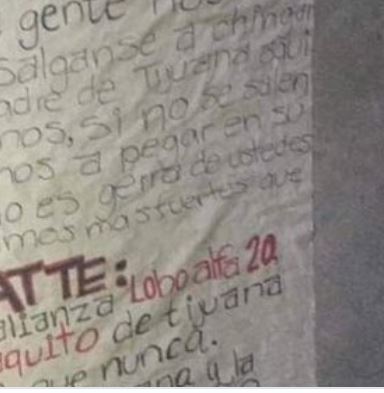 gente no
Salganse a chingar
adre de Tijuana aqui
nos, si no se salen
nos a pegar en su
o es gerra de ustedes
mos mas fuertes que
ATTE: Lobo alfa 20
alianza
quito de tijuana
que nunca.
na y la